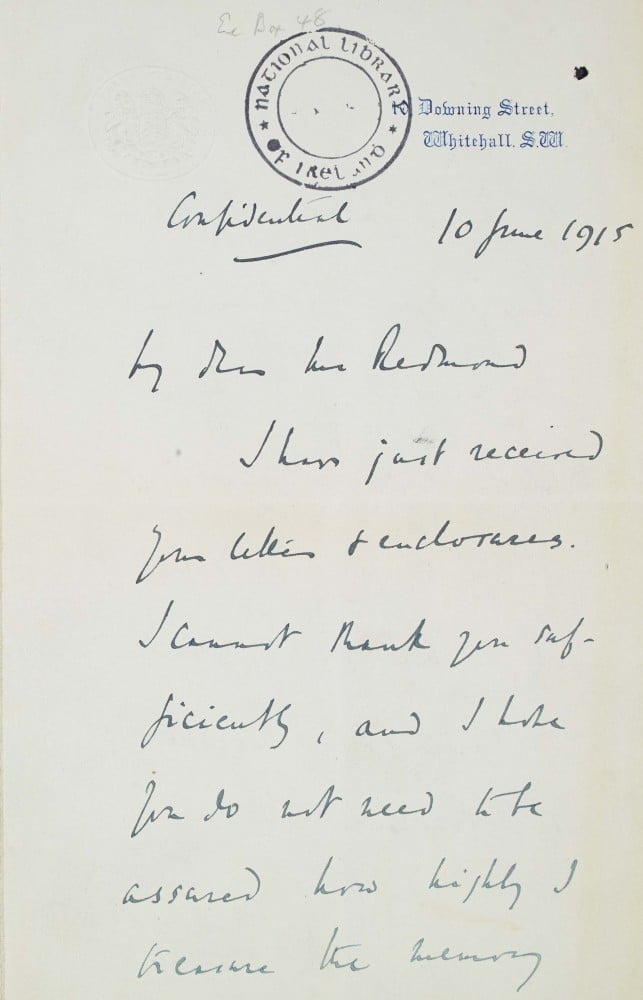 Enc Box 48
NATIONAL LIBRARY OF IRELAND
10, Downing Street,
Whitehall. S.W.
Confidential
10 June 1915
My dear Mr Redmond
I have just received
your letter & enclosures.
I cannot thank you suf-
ficiently, and I hope
you do not need to be
assured how highly I
treasure the memory